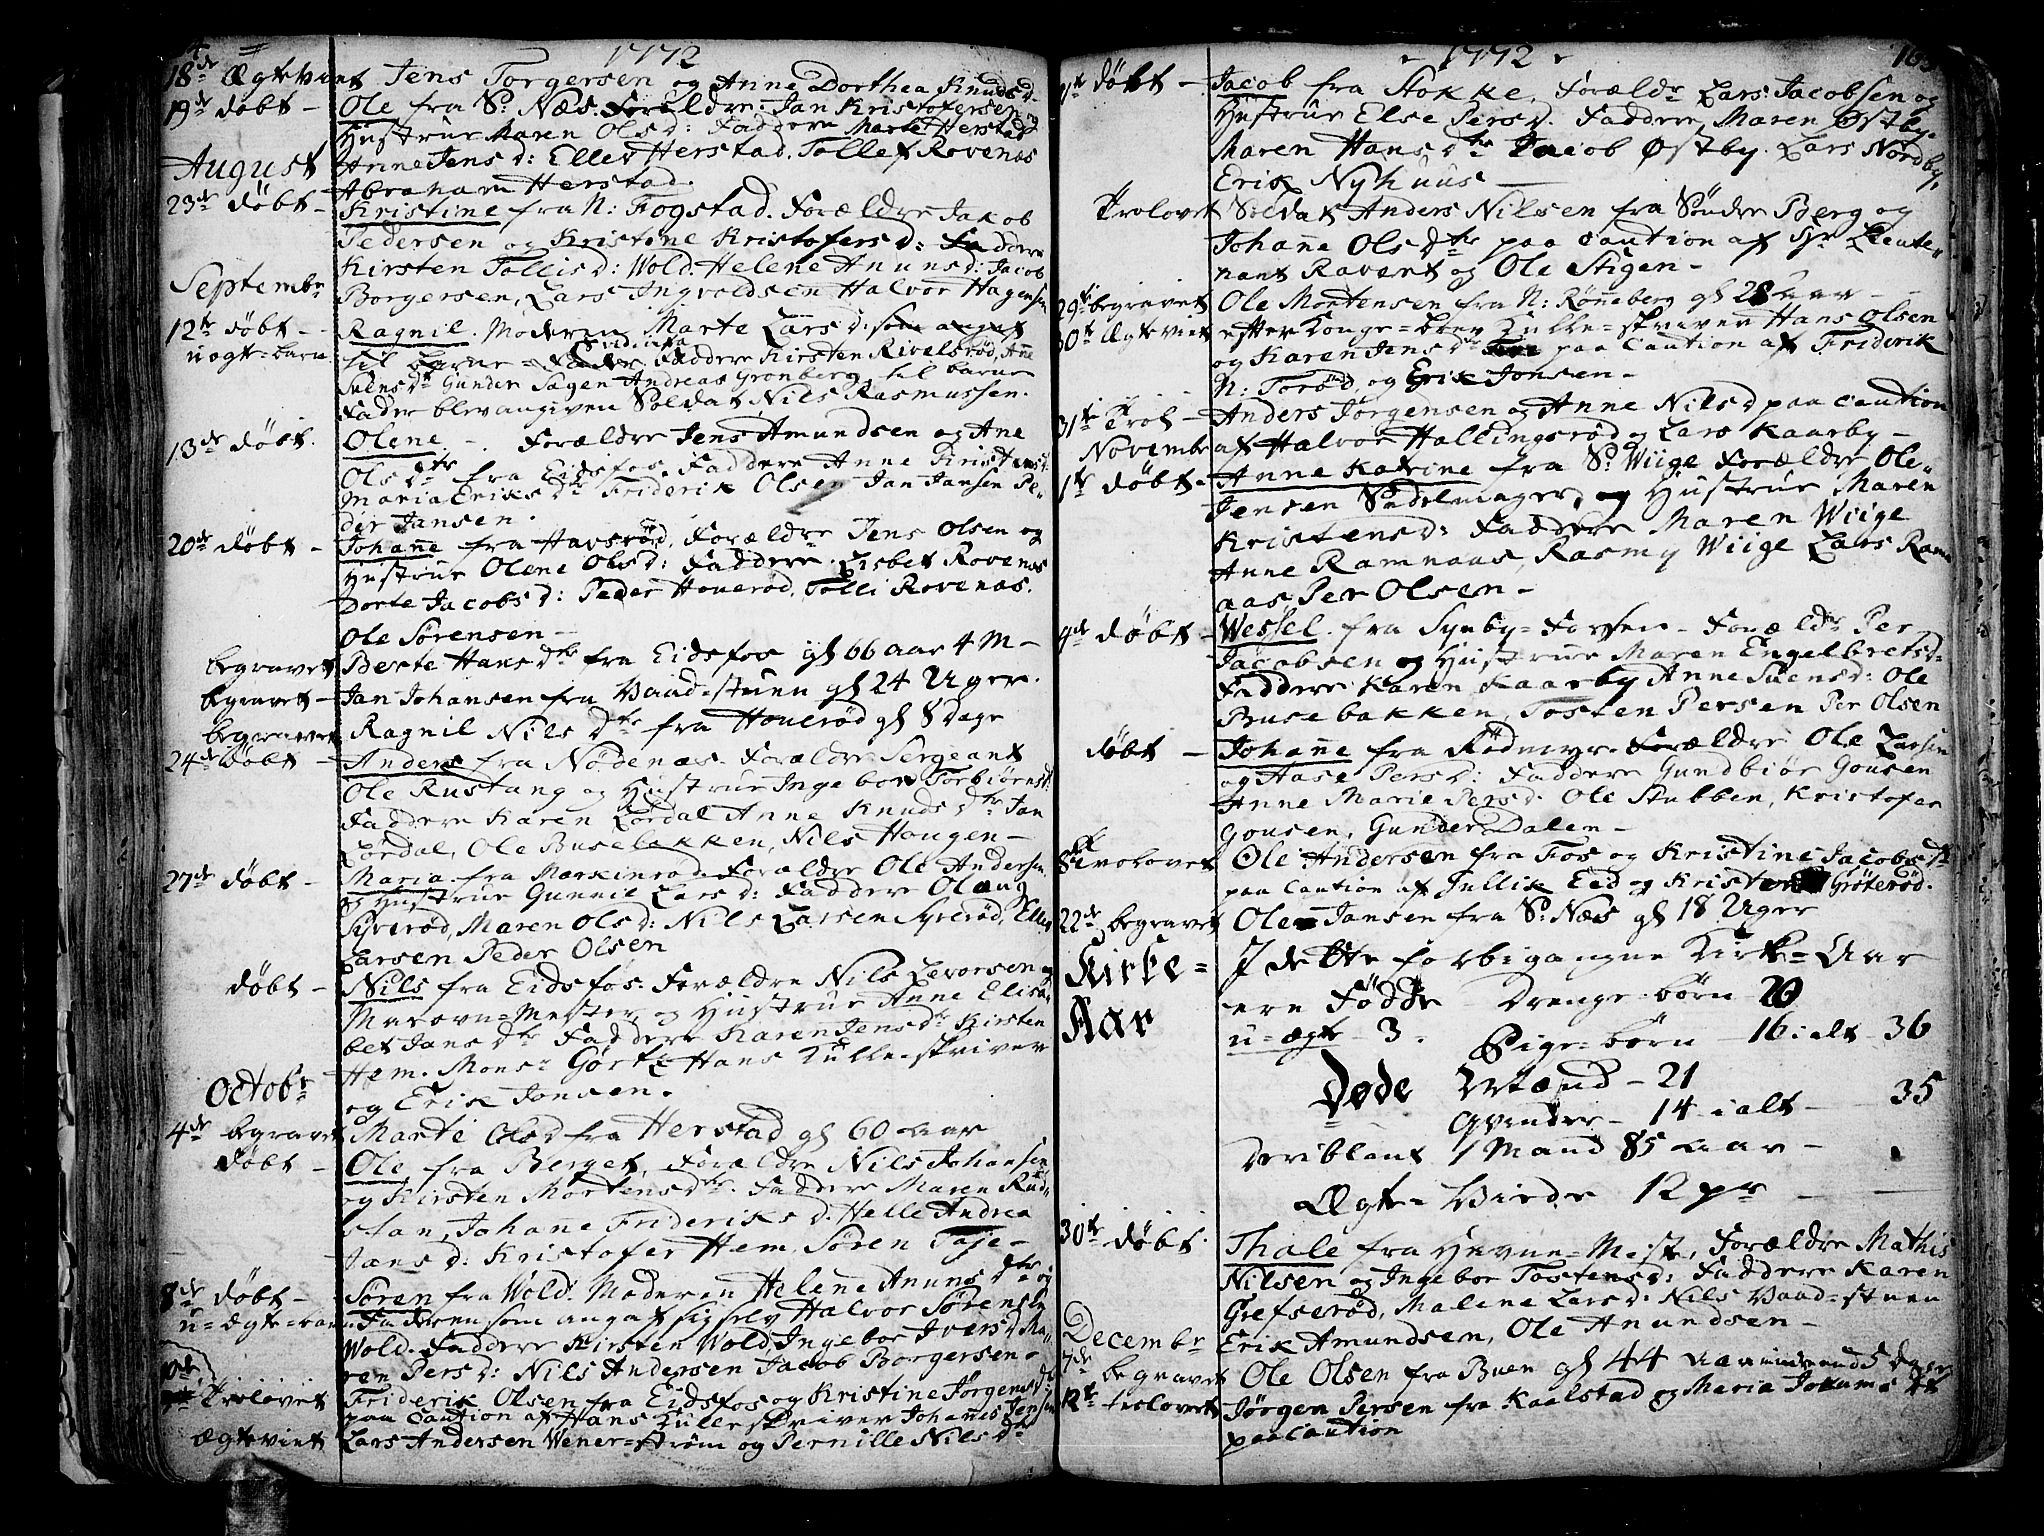 1772
18de Ægteviet Jens Torgersen og Anne Dorthea Knudsd.
19de døbt - Ole fra S: Næs. Forældre Jan Kristofersen og
Hustrue Maren Olsd: Faddere Marte Herstad
August Anne Jensd: Ellev Herstad. Tollef Rovenæs
Abraham Herstad.
23de døbt - Kristine fra N: Fogstad. Forældre Jakob
Pedersen og Kristine Kristofersd: Faddere
Kirsten Tollisd: Wold. Helene Anunsd: Jacob
Septembr Borgersen, Lars Ingvoldsen Halvor Hagensen
12te døbt - Ragnil. Moderen Marte Larsd: som angaf
uægte=barn til barne=Fader Faddere Kirsten Rivelsrød, Anne
Suensdr Gunder Sagen Andreas Gronberg til barne
Fader blev angiven Soldat Nils Rasmussen.
13de døbt. Olene - Forældre Jens Amundsen og Ane
Olsdtr fra Eidsfos. Faddere Anne Kristensd:
Maria Eriksdr Friderik Olsen Jan Jansen Pe-
der Jansen.
20de døbt - Johanne fra Havsrød, Forældre Jens Olsen og
Hustrue Olene Olsd: Faddere. Lisbet Rovenæs
Dorte Jacobsd: Peder Houerød. Tolli Rovenæs.
Ole Sørensen -
begravet Berte Hansdtr fra Eidsfos gl 66 aar 4 M -
begravet - Jan Johansen fra Vaad=stuen gl 24 Uger.
begravet Ragnil Nilsdtr fra Houerød gl 8 Dage
24de Døbt - Anders fra Nødenæs. Forældre Sergeant
Ole Rustang og Hustrue Ingebor Torbiørnsd:
Faddere Karen Lørdal Anne Knudsdtr Jan
Lørdal, Ole Busebakken, Nils Haugen -
27de døbt - Maria fra Markinrød. Forældre Ole Andersen
og Hustrue Gunnil Larsd: Faddere Olaug
Syverød, Maren Olsd: Nils Larsen Syrerød, Ellev
Larsen Peder Olsen
døbt - Nils fra Eidsfos Forældre Nils Levorsen
Masovn=Mester og Hustrue Anne Elisa-
bet Jansdtr Faddere Karen Jensdr Kirsten
Hem. Monsr Gørtz Hans Kulle=skriver
Octobr og Erik Jonsen.
4de begravet Marte Olsd fra Herstad gl 60 aar
døbt - Ole fra Berget, Forældre Nils Johansen
og Kirsten Mortensdtr. Faddere Maren
Johanne Frideriksd. Helle Andrea
Jansd: Kristofer Hem. Søren
8de døbt - Søren fra Wold. Moderen Helene Anunsdtr og
u=ægte=barn Faderen som angaf sig selv Halvor Sørensen
Wold. Faddere Kirsten Wold, Ingebor Iversd Ma-
ren Persd: Nils Andersen Jacob Borgersen.
10de Trolovet Friderik Olsen fra Eidsfos og Kristine Jørgensd:
paa Caution af Hans Kulleskriver Johannes Jensen
Ægteviet Lars Andersen Wener=strøm og Pernille Nilsdr
1772
døbt - Jacob fra Stokke. Forældr Lars Jacobsen og
Hustrue Else Persd. Faddere, Maren Østby.
Maren Hansdtr Jacob Østby. Lars Nordby,
Erik Nyhuus
Trolovet Soldat Anders Nilsen fra Søndre Berg og
Johanne Olsdtr paa Caution af Hr Lieute-
nant Ravert og Ole Stigen -
29de begravet Ole Mortensen fra N: Rønneberg gl 28 aar -
30te Ægteviet efter Konge=brev Kulle=skriver Hans Olsen
og Karen Jensdr paa Caution af Friderik
N: Torød, og Erik Jonsen -
31te Trol - Anders Jørgensen og Anne Nilsd paa Caution
Novembr af Halvor Hallingsrød og Lars Kaarby -
1te døbt - Anne Katrine fra S: Wiige Forældre Ole
Jensen Sadelmager, og Hustrue Maren
Kristensd: Faddere Maren Wiige
Anne Ramnaas, Rasmy Wiige Lars Ramn-
aas Per Olsen -
døbt - Wessel fra Synby=Forsen - Forældr Per
Jacobsen og Hustrue Maren Engelbretsd:
Faddere Karen Kaarby Anne Suensd: Ole
Busebakken, Tosten Persen Per Olsen
døbt - Johanne fra Rødmyr. Forældre Ole Larsen
og Aase Persd: Faddere Gundbiør Gousen
Anne Marie Persd. Ole Stubben, Kristofer
Gousen, Gunder Dalen -
8de Trolovet Ole Andersen fra Fos og Kristine Jacobsdr
paa Caution af Jullik Eid og Kristen Grøterød.
22de begravet Ole Jansen fra S: Næs gl 18 Uger
Kirke= I dette forbigangne Kirke=Aar
Aar ere Fødde Drenge-børn 20
u=ægte - 3. Pige=børn 16 i alt - 36
Døde Mænd - 21
Qvinder - 14 i alt - 35
Deriblant 1 Mand 85 aar -
Ægte=Viede 12 pr
30te døbt. Thale fra Hevne=, Forældre Mathis
Nilsen og Ingebor Tostensd: Faddere Karen
Grefserød, Malene Larsd. Nils Vaad=stuen
Decembr Erik Amundsen, Ole Anundsen -
7de begravet Ole Olsen fra Buen gl 44 aar
12te trolovet Jørgen Persen fra Kaalstad og Maria
paa Caution